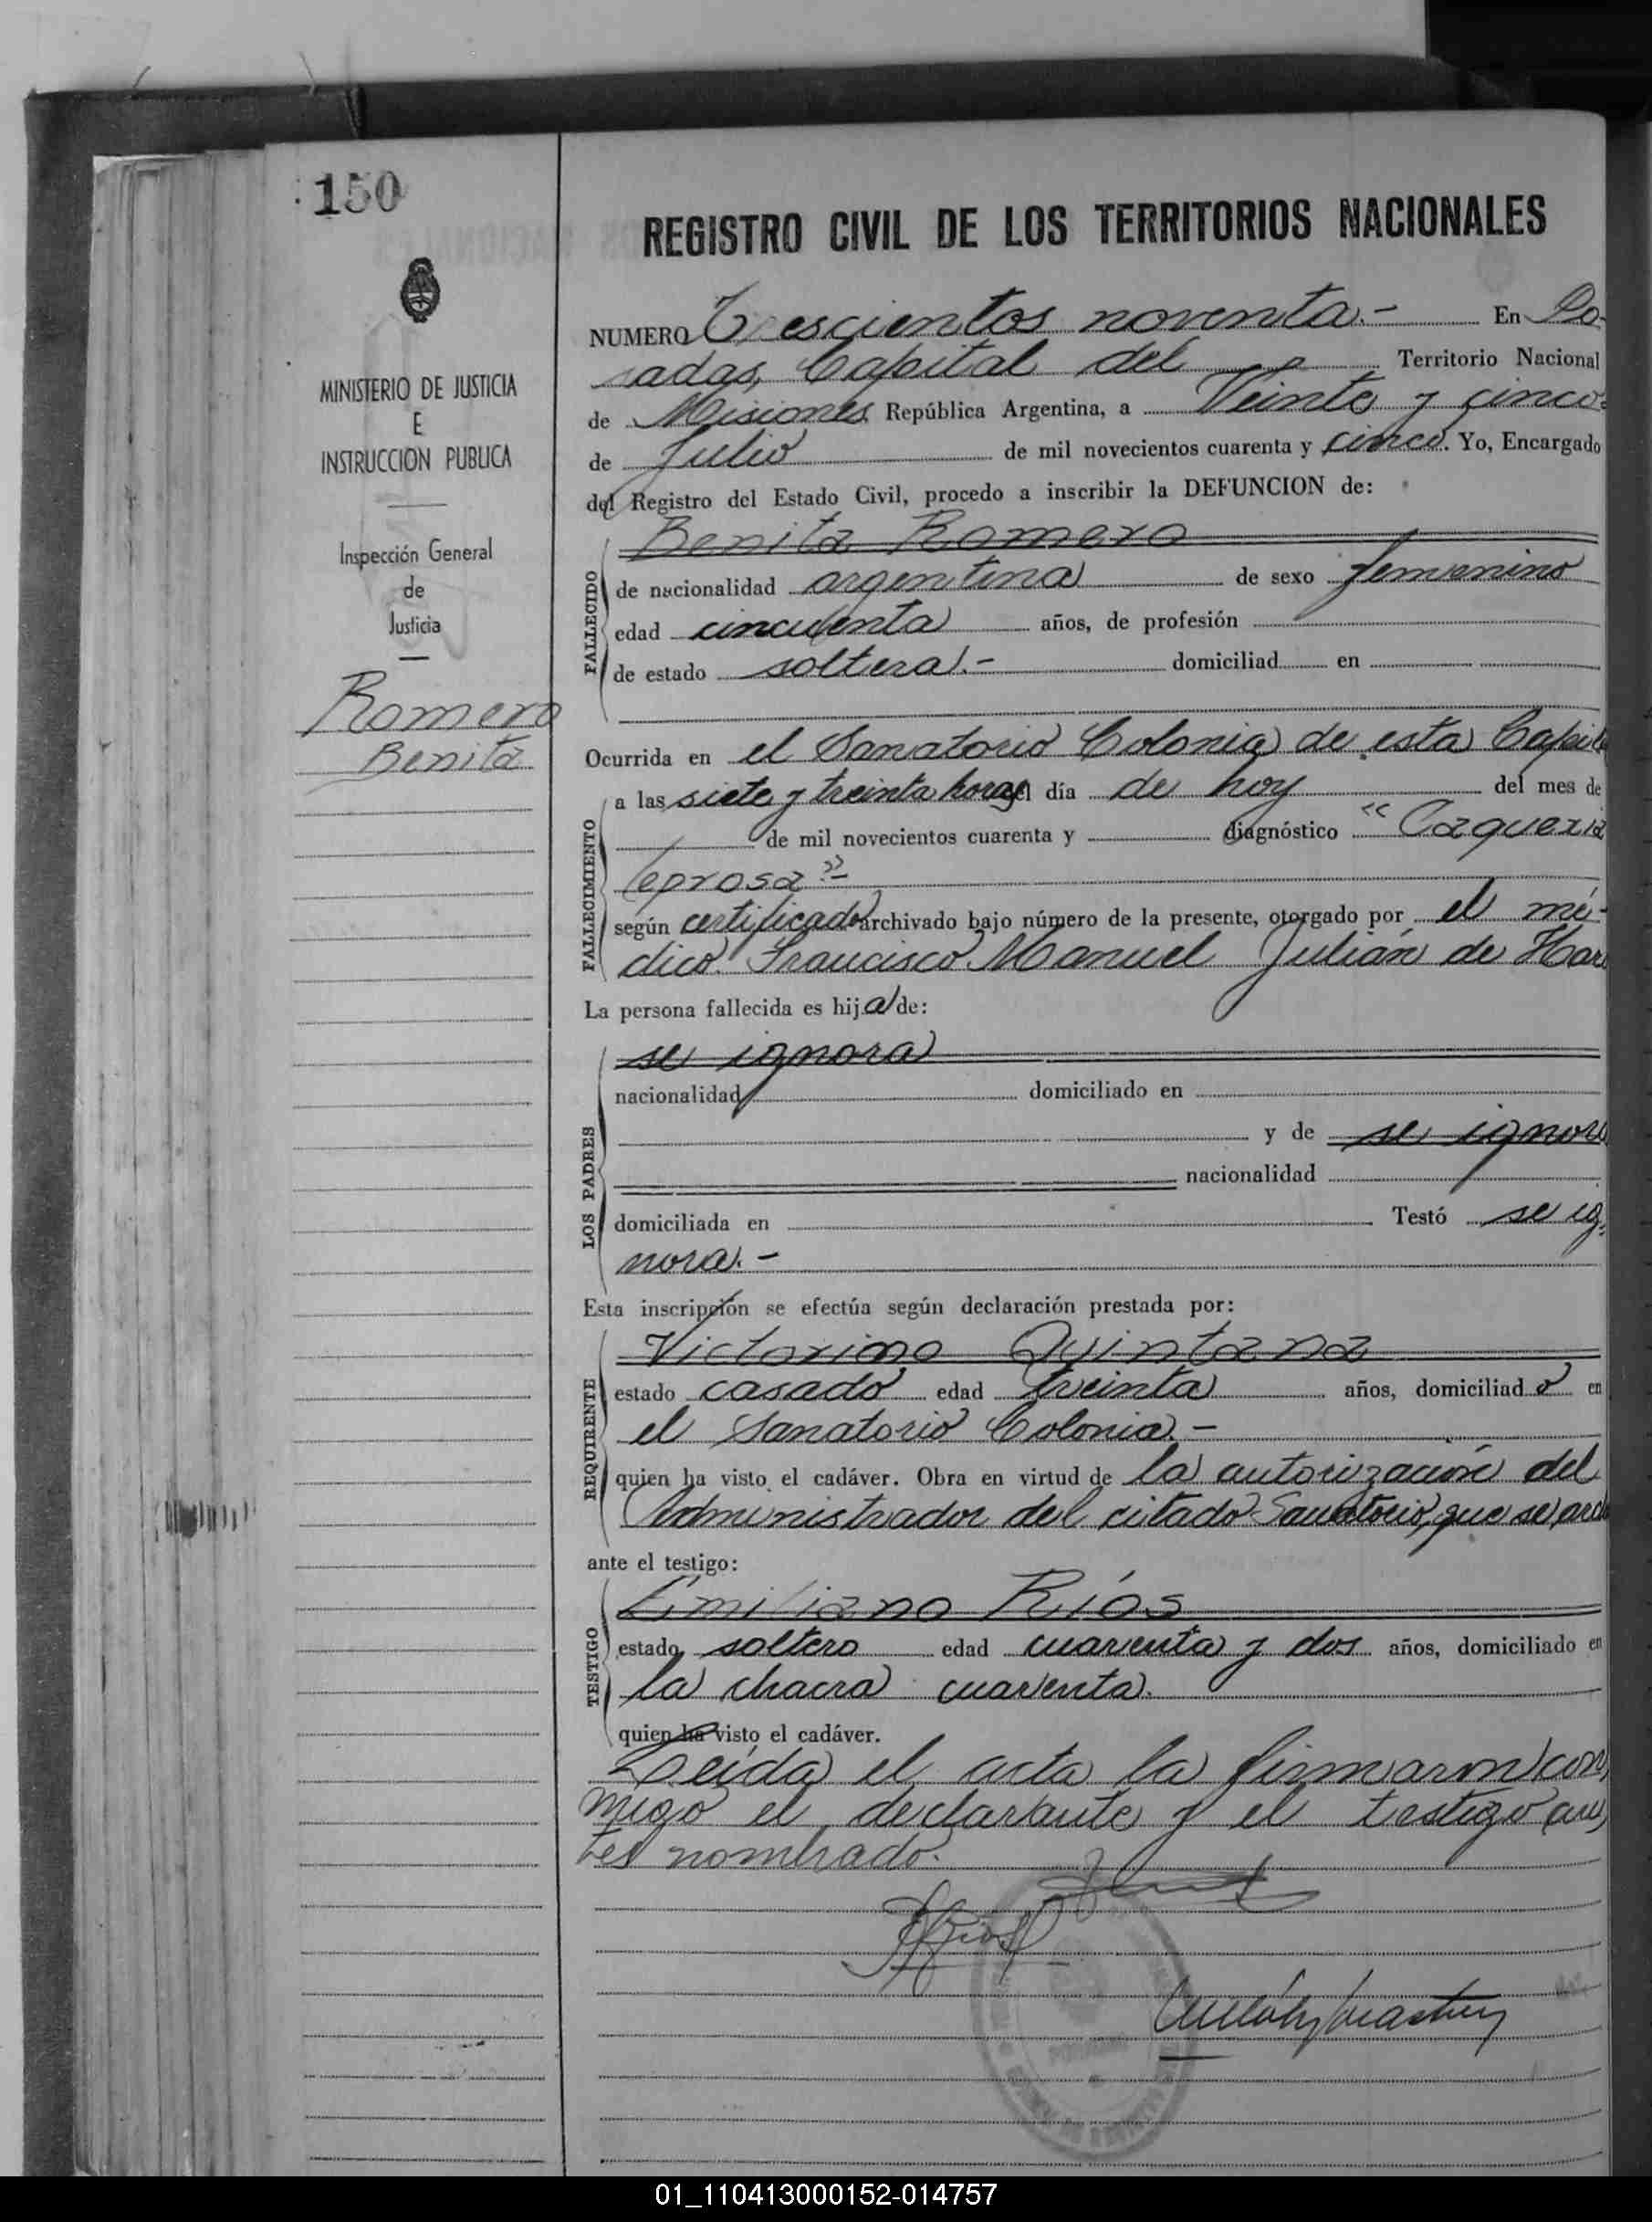 150
REGISTRO CIVIL DE LOS TERRITORIOS NACIONALES
MINISTERIO DE JUSTICIA
E
INSTRUCCION PUBLICA
Inspección General
de
Justicia
Romero
Benita
NUMERO Trescientos noventa.- En Po-
sadas, Capital del Territorio Nacional
de Misiones República Argentina, a Veinte y cinco
de Julio de mil novecientos cuarenta y cinco. Yo, Encargado
del Registro del Estado Civil, procedo a inscribir la DEFUNCION de:
Benita Romero
FALLECIDO
de nacionalidad argentina de sexo femenino
edad cincuenta años, de profesión
de estado soltera.- domiciliad en
Ocurrida en el Sanatorio Colonia de esta Capital
FALLECIMIENTO
a las siete y treinta horas el día de hoy del mes de
de mil novecientos cuarenta y diagnóstico "Caquexia
leprosa"-
según certificado archivado bajo número de la presente, otorgado por el mé-
dico Francisco Manuel Julián de Haro
La persona fallecida es hija de:
LOS PADRES
se ignora
nacionalidad domiciliado en
y de se ignora
nacionalidad
domiciliada en Testó se ig-
nora.-
Esta inscripción se efectúa según declaración prestada por:
REQUIRENTE
Victorino Quintana
estado casado edad treinta años, domiciliado en
el Sanatorio Colonia.-
quien ha visto el cadáver. Obra en virtud de la autorización del
Administrador del citado Sanatorio, que se
ante el testigo:
TESTIGO
Emiliano Ríos
estado soltero edad cuarenta y dos años, domiciliado en
la chacra cuarenta.
quien ha visto el cadáver.
Leída el acta la firmaron con
migo el declarante y el testigo an
tes nombrado.
01_110413000152-014757